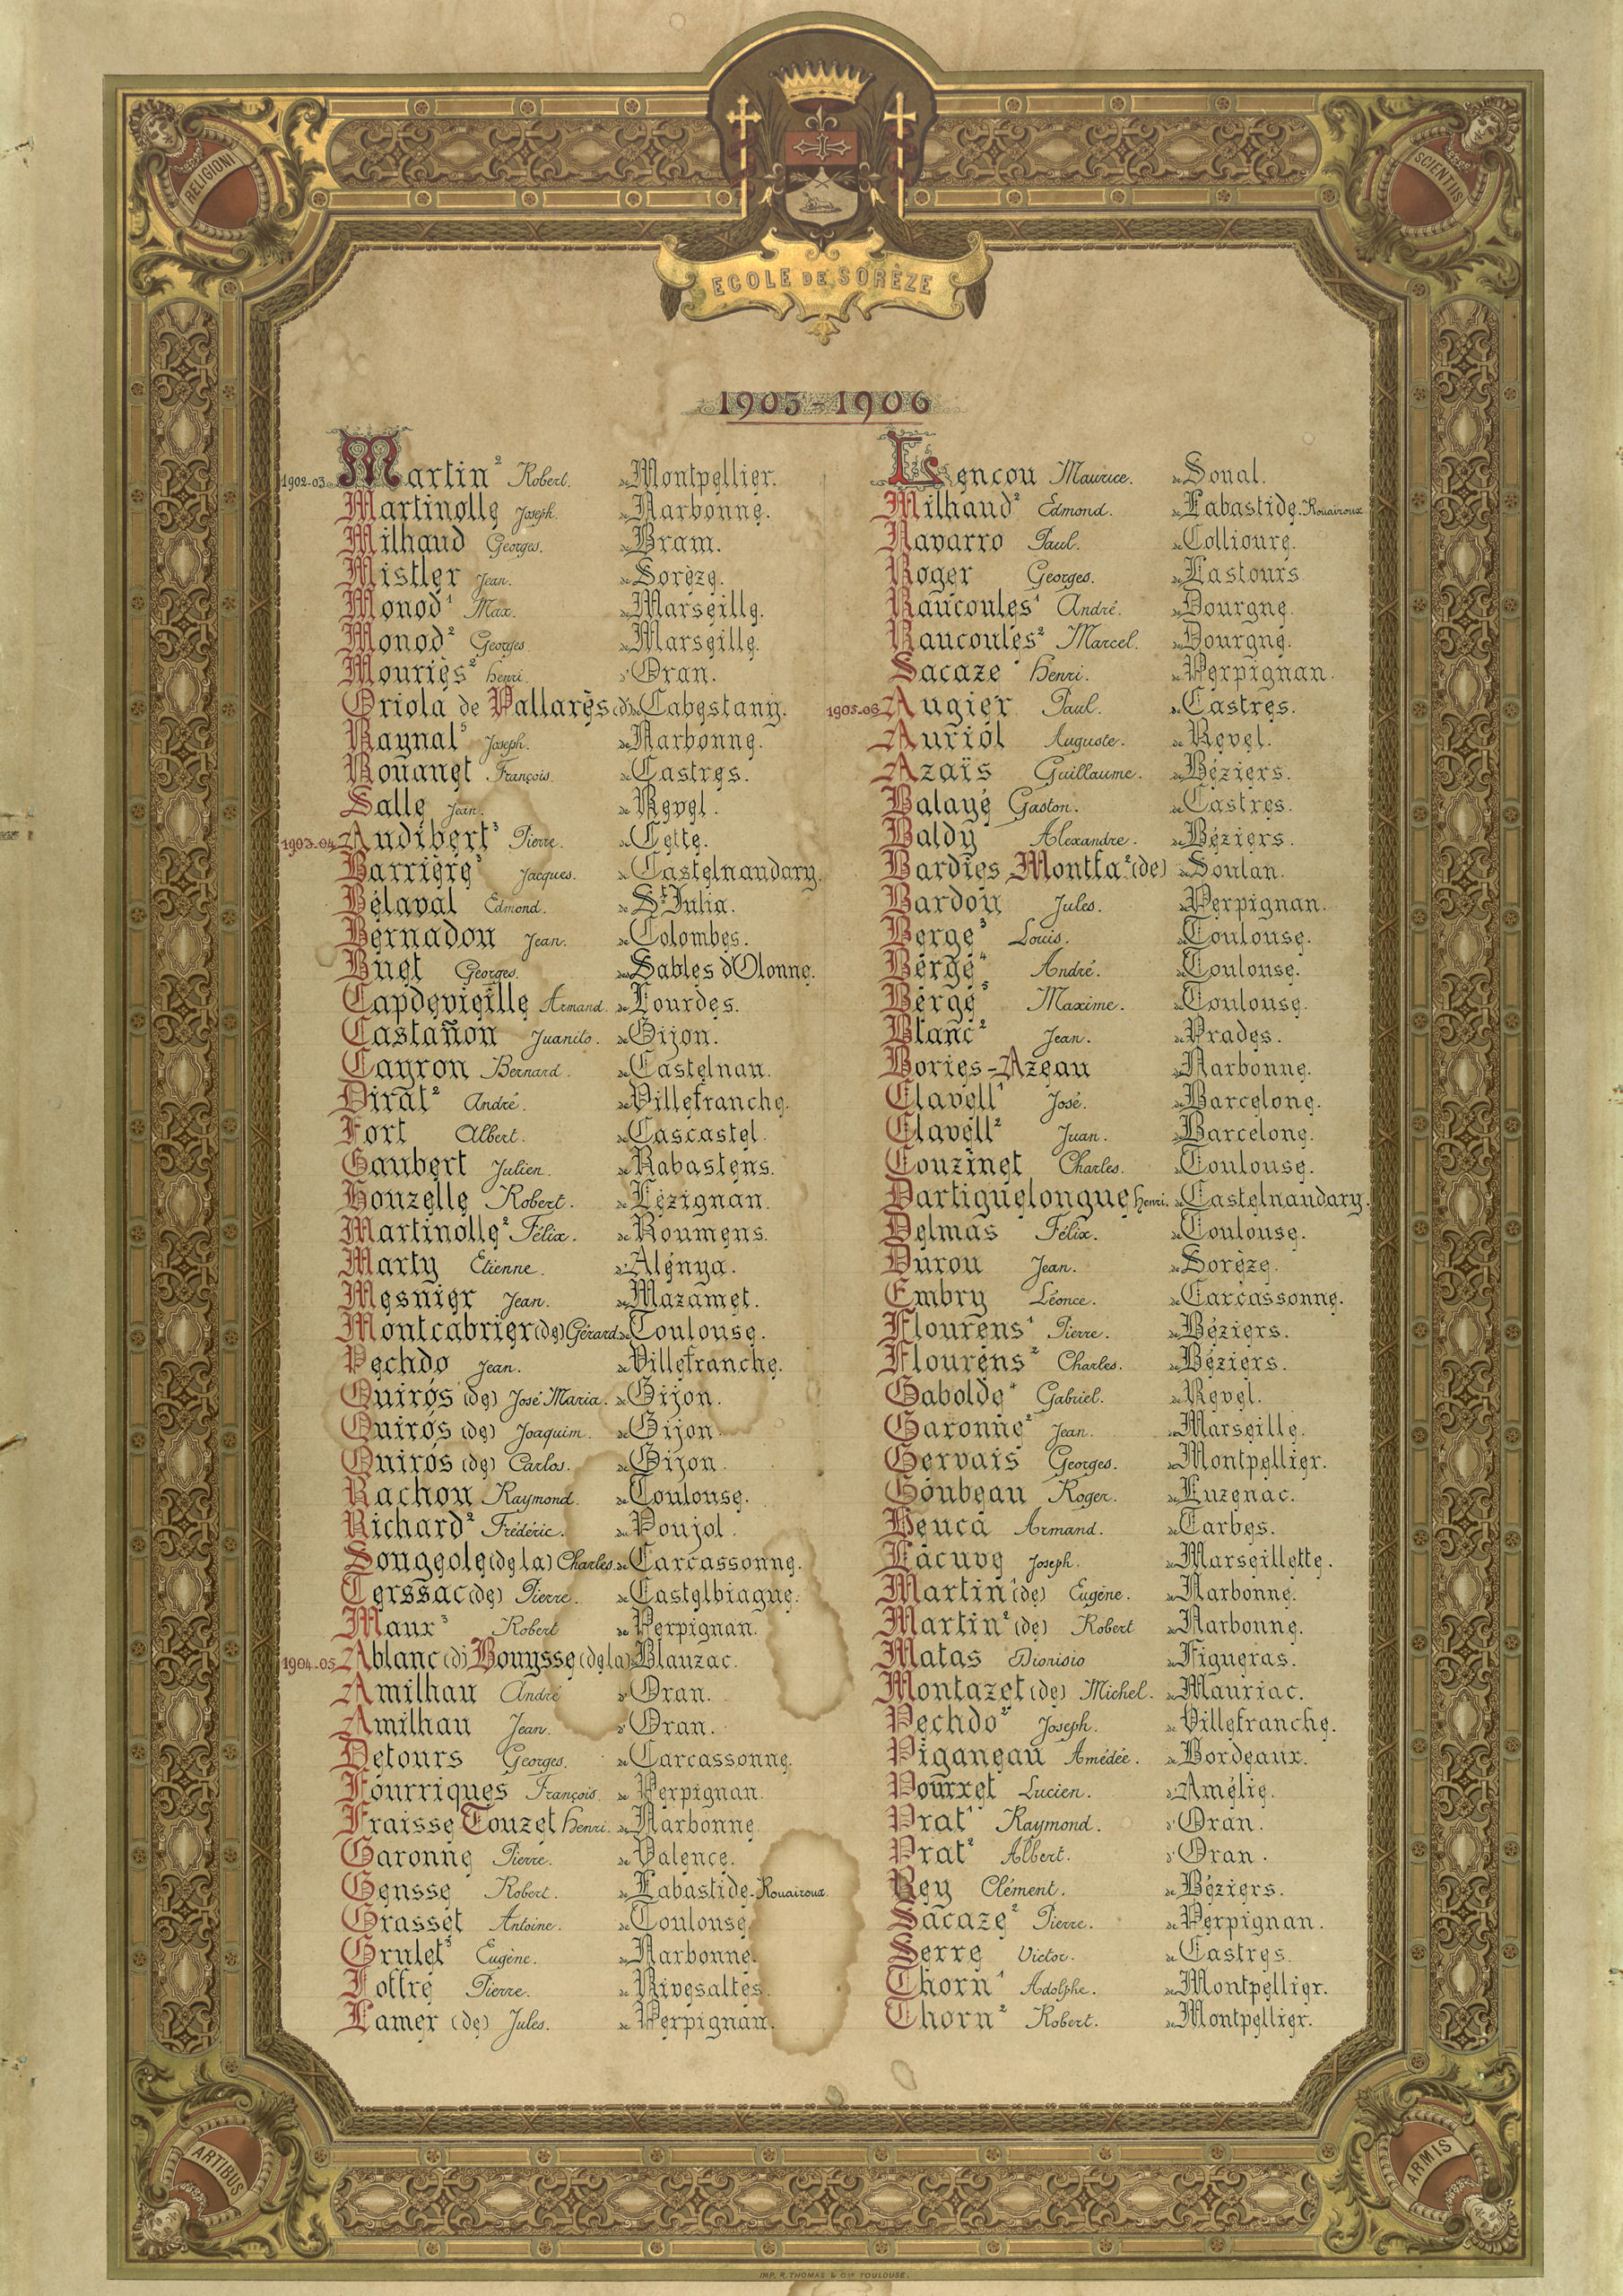 RELIGIONI
SCIENTIIS
ECOLE DE SORÈZE
1905-1906
1902-03 Martin² Robert. de Montpellier.
Martinolle Joseph. de Narbonne.
Milhaud Georges. de Bram.
Mistler Jean. de Sorèze.
Monod¹ Max. de Marseille.
Monod² Georges. de Marseille.
Mouriès² Henri. d'Oran.
Oriola de Pallarès (d') de Cabestany.
Raynal⁵ Joseph. de Narbonne.
Rouanet François. de Castres.
Salle Jean. de Revel.
1903-04 Audibert³ Pierre. de Cette.
Barrière³ Jacques. de Castelnaudary.
Bélaval Edmond. de St Julia.
Bernadou Jean. de Colombes.
Buet Georges. des Sables d'Olonne.
Capdevieille Armand. de Lourdes.
Castañon Juanito. de Gijon.
Cayron Bernard. de Castelnau.
Dirat² André. de Villefranche.
Fort Albert. de Cascastel.
Gaubert Julien. de Rabastens.
Houzelle Robert. de Lézignan.
Martinolle² Félix. de Roumens.
Marty Etienne. d'Alénya.
Mesnier Jean. de Mazamet.
Montcabrier (de) Gérard. de Toulouse.
Pechdo Jean. de Villefranche.
Quirós (de) José Maria. de Gijon.
Quirós (de) Joaquim. de Gijon.
Quirós (de) Carlos. de Gijon.
Rachou Raymond. de Toulouse.
Richard² Frédéric. du Poujol.
Sougeole (de la) Charles. de Carcassonne.
Terssac (de) Pierre. de Castelbiague.
Maux³ Robert de Perpignan.
1904-05 Ablanc (d') Bouysse (de la) de Blauzac.
Amilhau André d'Oran.
Amilhau Jean. d'Oran.
Detours Georges. de Carcassonne.
Fourriques François. de Perpignan.
Fraisse Touzet Henri. de Narbonne.
Garonne Pierre. de Valence.
Gensse Robert. de Labastide-Rouairoux.
Grasset Antoine. de Toulouse.
Grulet³ Eugène. de Narbonne.
Joffre Pierre. de Rivesaltes.
Lamer (de) Jules. de Perpignan.
Lencou Maurice. de Soual.
Milhaud² Edmond. de Labastide-Rouairoux
Navarro Paul. de Collioure.
Roger Georges. de Lastours
Raucoules¹ André. de Dourgne.
Raucoules² Marcel. de Dourgne.
Sacaze¹ Henri. de Perpignan.
1905-06 Augier Paul. de Castres.
Auriol Auguste. de Revel.
Azaïs Guillaume. de Béziers.
Balayé Gaston. de Castres.
Baldy Alexandre. de Béziers.
Bardies Montfa² (de) de Soulan.
Bardou Jules. de Perpignan.
Bergé³ Louis. de Toulouse.
Bergé⁴ André. de Toulouse.
Bergé⁵ Maxime. de Toulouse.
Blanc² Jean. de Prades.
Bories-Azeau de Narbonne.
Clavell¹ José. de Barcelone.
Clavell² Juan. de Barcelone.
Couzinet Charles. de Toulouse.
Dartiguelongue Henri. de Castelnaudary.
Delmas Félix. de Toulouse.
Durou Jean. de Sorèze.
Embry Léonce. de Carcassonne.
Flourens¹ Pierre. de Béziers.
Flourens² Charles. de Béziers.
Gabolde⁴ Gabriel. de Revel.
Garonne² Jean. de Marseille.
Gervais Georges. de Montpellier.
Goubeau Roger. de Luzenac.
Heuca Armand. de Tarbes.
Lacuve Joseph. de Marseillette.
Martin¹ (de) Eugène. de Narbonne.
Martin² (de) Robert de Narbonne.
Matas Dionisio de Figueras.
Montazet (de) Michel. de Mauriac.
Pechdo² Joseph. de Villefranche.
Piganeau Amédée. de Bordeaux.
Pourret Lucien. d'Amélie.
Prat¹ Raymond. d'Oran.
Prat² Albert. d'Oran.
Rey Clément. de Béziers.
Sacaze² Pierre. de Perpignan.
Serre Victor. de Castres.
Thorn¹ Adolphe. de Montpellier.
Thorn² Robert. de Montpellier.
ARTIBUS
ARMIS
IMP. R. THOMAS & Cie TOULOUSE.